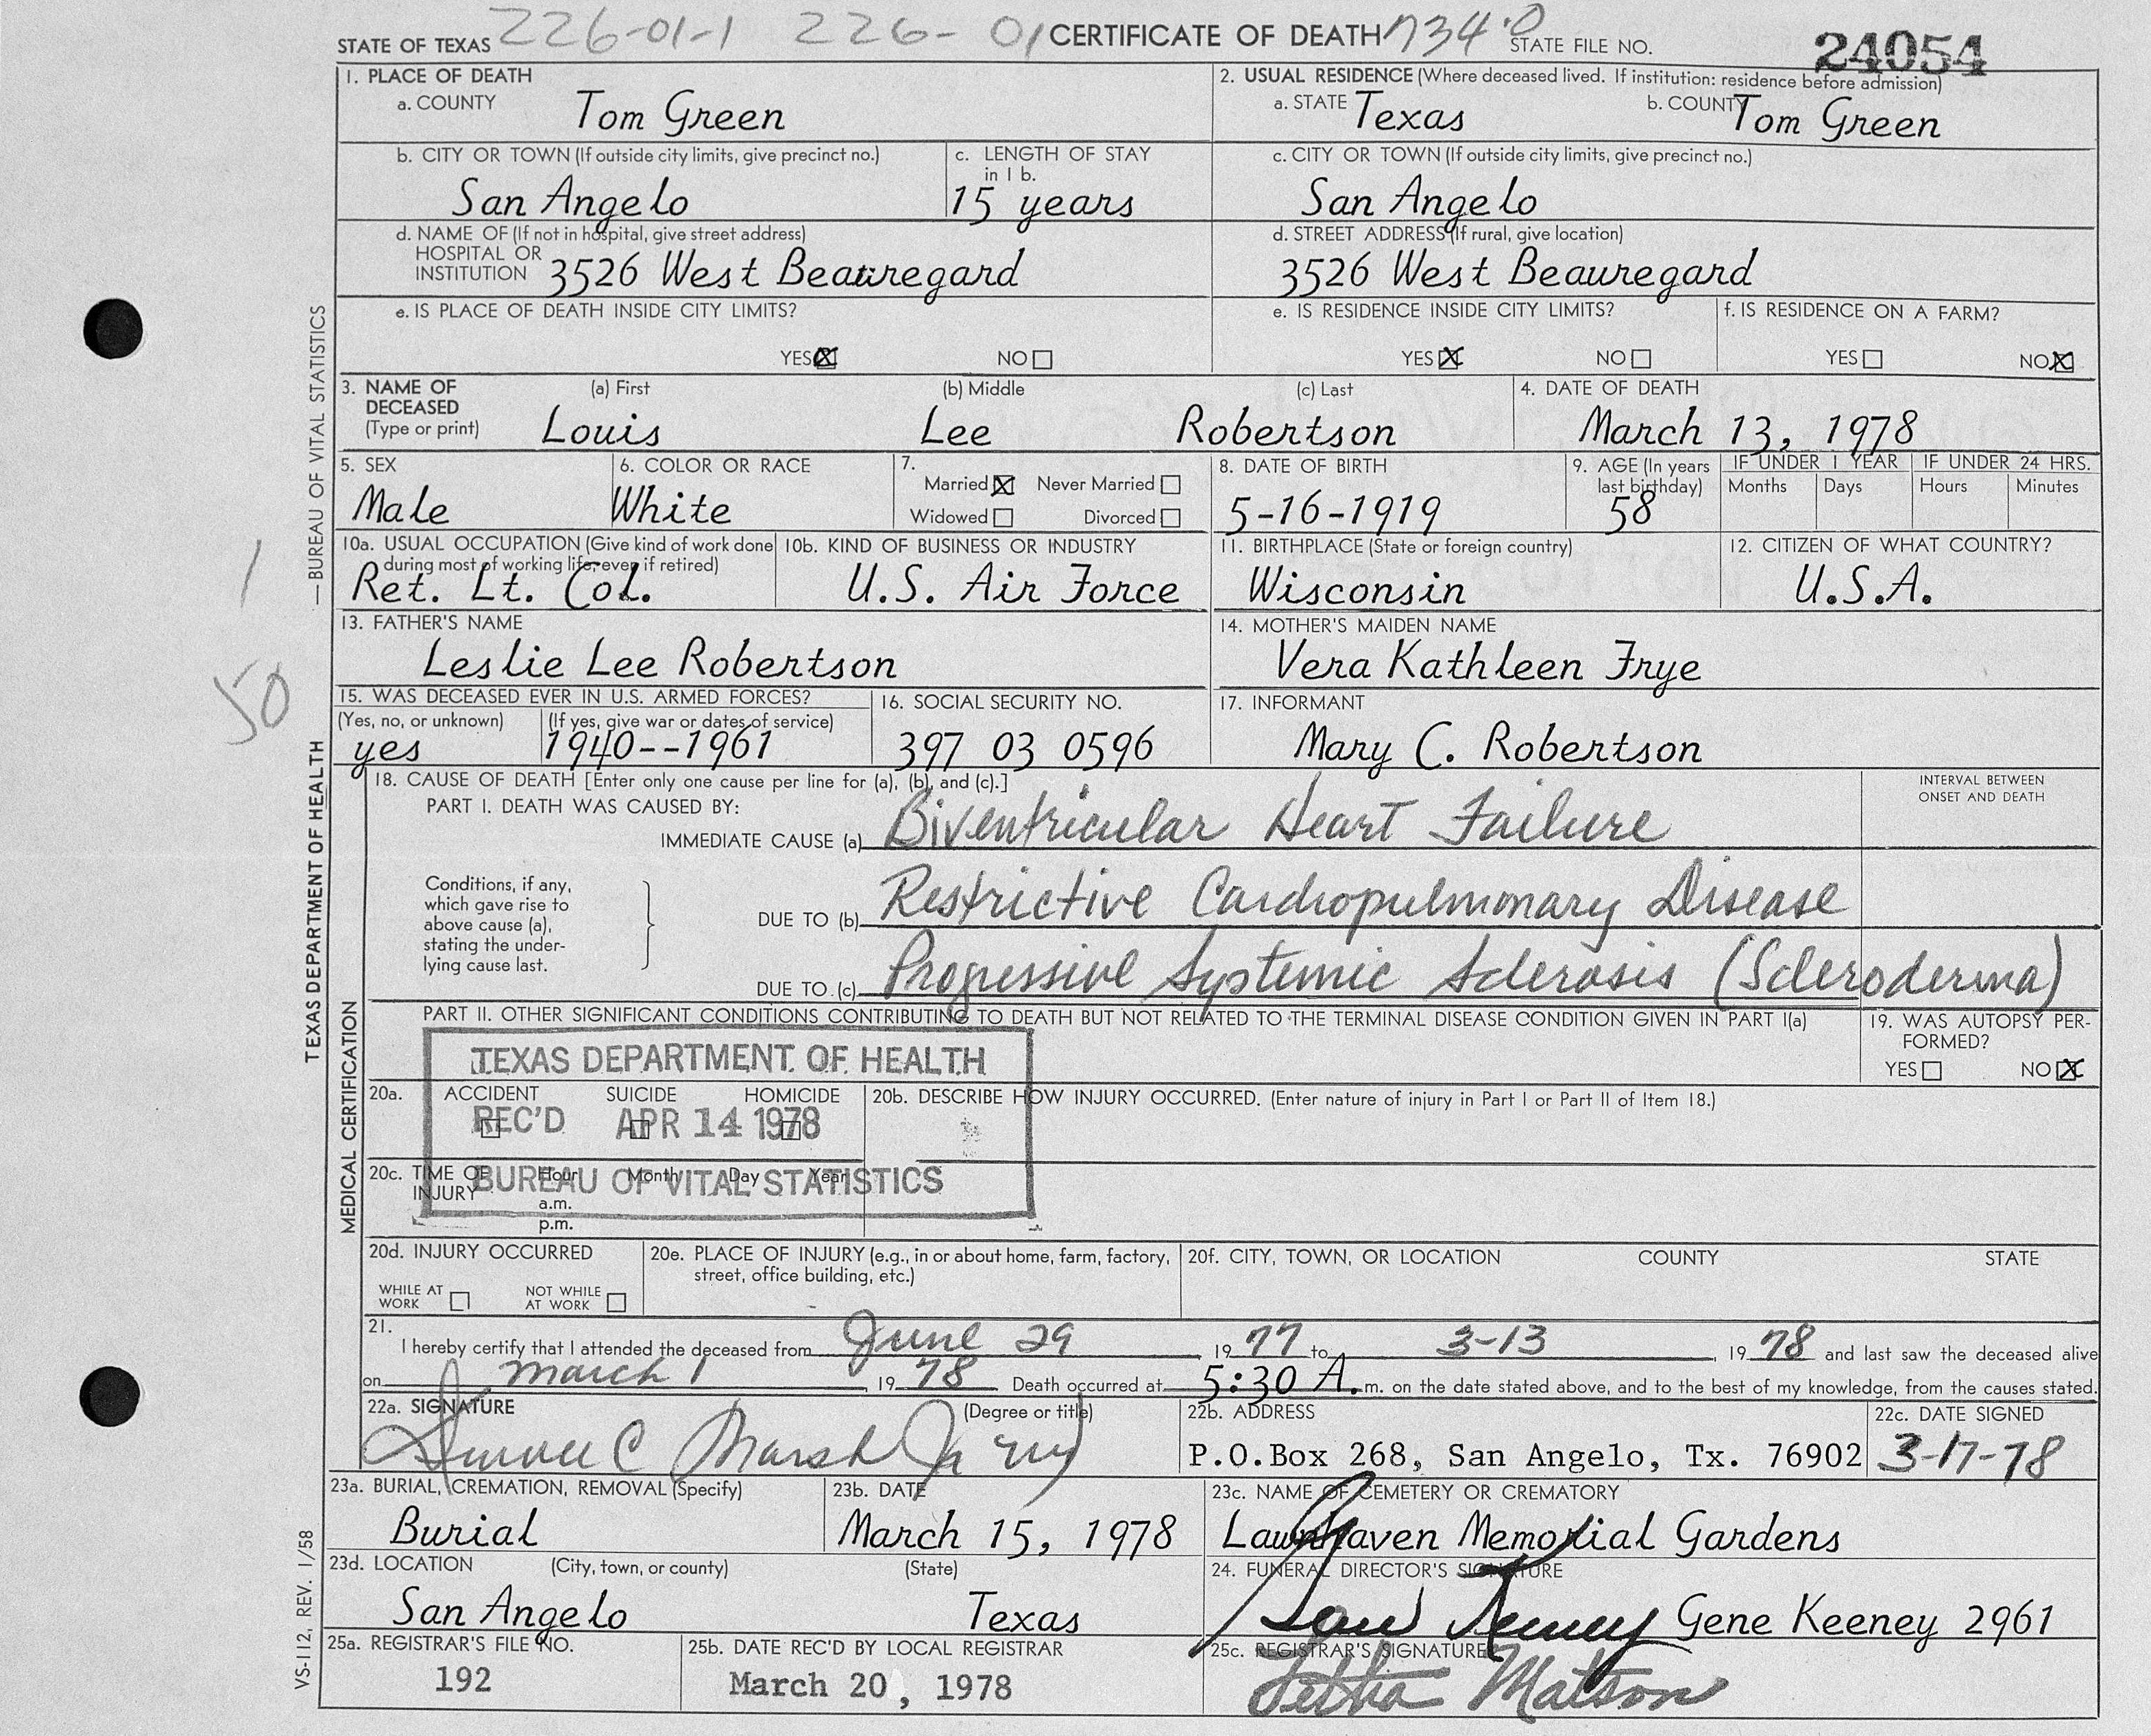 STATE OF TEXAS 226-01-1 226-01 CERTIFICATE OF DEATH 734.0 STATE FILE NO. 24054
1. PLACE OF DEATH
a. COUNTY Tom Green
2. USUAL RESIDENCE (Where deceased lived. If institution: residence before admission)
a. STATE Texas b. COUNTY Tom Green
b. CITY OR TOWN (If outside city limits, give precinct no.)
San Angelo
c. LENGTH OF STAY
in 1 b.
15 years
c. CITY OR TOWN (If outside city limits, give precinct no.)
San Angelo
d. NAME OF (If not in hospital, give street address)
HOSPITAL OR
INSTITUTION 3526 West Beauregard
d. STREET ADDRESS (If rural, give location)
3526 West Beauregard
e. IS PLACE OF DEATH INSIDE CITY LIMITS?
YES NO
e. IS RESIDENCE INSIDE CITY LIMITS?
YES NO
f. IS RESIDENCE ON A FARM?
YES NO
3. NAME OF
DECEASED
(Type or print)
(a) First (b) Middle (c) Last
Louis Lee Robertson
4. DATE OF DEATH
March 13, 1978
5. SEX
Male
6. COLOR OR RACE
White
7.
Married Never Married
Widowed Divorced
8. DATE OF BIRTH
5-16-1919
9. AGE (In years
last birthday)
58
IF UNDER 1 YEAR IF UNDER 24 HRS.
Months Days Hours Minutes
10a. USUAL OCCUPATION (Give kind of work done
during most of working life, even if retired)
Ret. Lt. Col.
10b. KIND OF BUSINESS OR INDUSTRY
U.S. Air Force
11. BIRTHPLACE (State or foreign country)
Wisconsin
12. CITIZEN OF WHAT COUNTRY?
U.S.A.
13. FATHER'S NAME
Leslie Lee Robertson
14. MOTHER'S MAIDEN NAME
Vera Kathleen Frye
15. WAS DECEASED EVER IN U.S. ARMED FORCES?
(Yes, no, or unknown) (If yes, give war or dates of service)
yes 1940--1961
16. SOCIAL SECURITY NO.
397 03 0596
17. INFORMANT
Mary C. Robertson
18. CAUSE OF DEATH [Enter only one cause per line for (a), (b), and (c).]
INTERVAL BETWEEN
ONSET AND DEATH
PART I. DEATH WAS CAUSED BY:
IMMEDIATE CAUSE (a) Biventricular Heart Failure
Conditions, if any,
which gave rise to
above cause (a),
stating the under-
lying cause last.
DUE TO (b) Restrictive Cardiopulmonary Disease
DUE TO (c) Progressive Systemic Sclerosis (Scleroderma)
PART II. OTHER SIGNIFICANT CONDITIONS CONTRIBUTING TO DEATH BUT NOT RELATED TO THE TERMINAL DISEASE CONDITION GIVEN IN PART I(a)
19. WAS AUTOPSY PER-
FORMED?
YES NO
TEXAS DEPARTMENT OF HEALTH
REC'D APR 14 1978
BUREAU OF VITAL STATISTICS
20a. ACCIDENT SUICIDE HOMICIDE
20b. DESCRIBE HOW INJURY OCCURRED. (Enter nature of injury in Part I or Part II of Item 18.)
20c. TIME OF INJURY
Hour Month Day Year
a.m.
p.m.
20d. INJURY OCCURRED
WHILE AT WORK NOT WHILE AT WORK
20e. PLACE OF INJURY (e.g., in or about home, farm, factory,
street, office building, etc.)
20f. CITY, TOWN, OR LOCATION COUNTY STATE
21.
I hereby certify that I attended the deceased from June 29, 1977 to 3-13, 1978 and last saw the deceased alive
on March 1 1978 Death occurred at 5:30 A.m. on the date stated above, and to the best of my knowledge, from the causes stated.
22a. SIGNATURE (Degree or title)
C Marsh Jr MD
22b. ADDRESS
P.O.Box 268, San Angelo, Tx. 76902
22c. DATE SIGNED
3-17-78
23a. BURIAL, CREMATION, REMOVAL (Specify)
Burial
23b. DATE
March 15, 1978
23c. NAME OF CEMETERY OR CREMATORY
Lawnhaven Memorial Gardens
23d. LOCATION (City, town, or county) (State)
San Angelo Texas
24. FUNERAL DIRECTOR'S SIGNATURE
Keeney Gene Keeney 2961
25a. REGISTRAR'S FILE NO.
192
25b. DATE REC'D BY LOCAL REGISTRAR
March 20, 1978
25c. REGISTRAR'S SIGNATURE
Letha Matson
TEXAS DEPARTMENT OF HEALTH — BUREAU OF VITAL STATISTICS
MEDICAL CERTIFICATION
VS-112, REV. 1/58
1
50